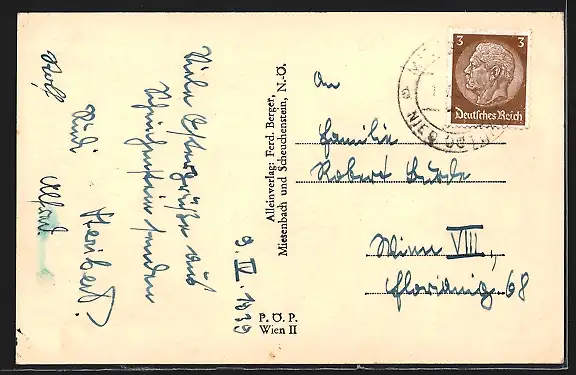 Viele Ostergrüße aus
senden
Rudi
Alfred
Heribert.
9. IV. 1939
Alleinverlag: Ferd. Berger,
Miesenbach und Scheuchenstein, N.-Ö.
P. Ö. P.
Wien II
An
Familie
Robert
Wien VIII,
Florianig 68
3 3
Deutsches Reich